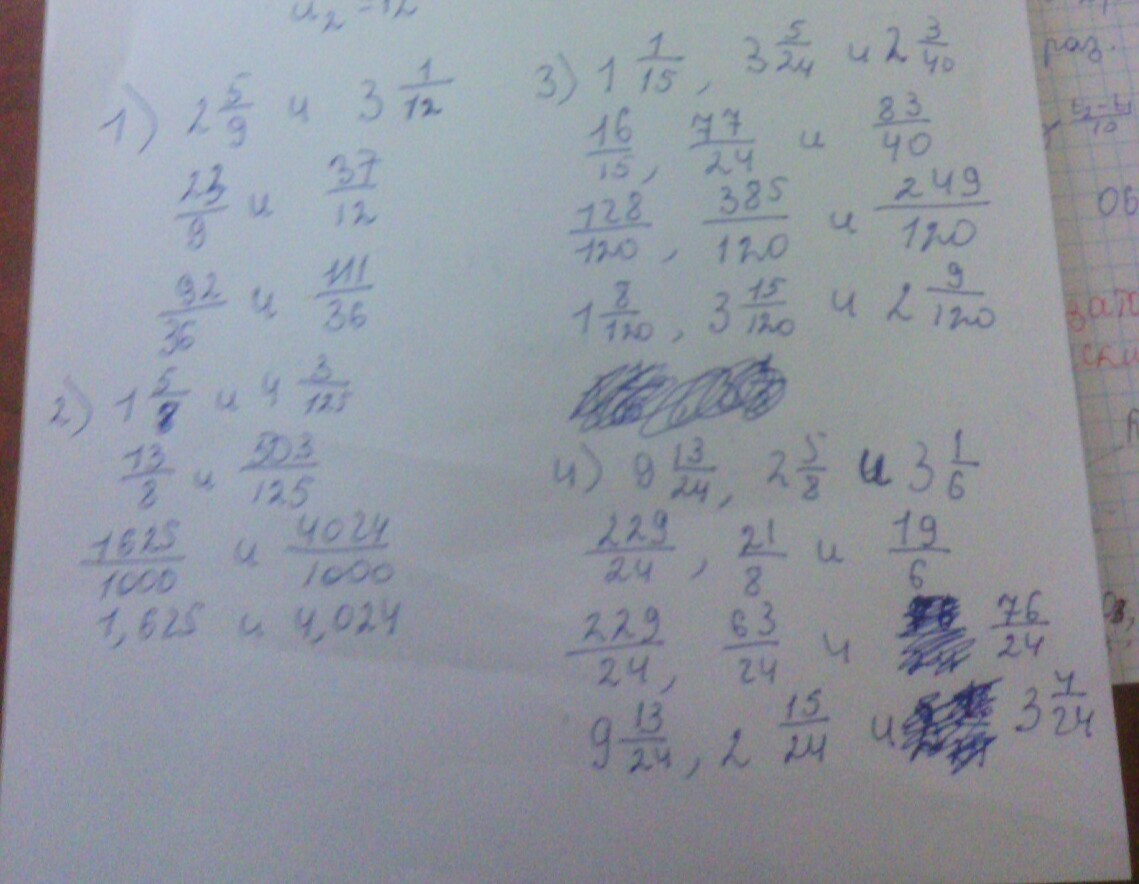 u₂ = 12
1) 2 5/9 и 3 1/12
23/9 и 37/12
92/36 и 111/36
2) 1 5/8 и 4 3/125
13/8 и 503/125
1625/1000 и 4024/1000
1,625 и 4,024
3) 1 1/15, 3 5/24 и 2 3/40
16/15, 77/24 и 83/40
128/120, 385/120 и 249/120
1 8/120, 3 15/120 и 2 9/120
4) 9 13/24, 2 5/8 и 3 1/6
229/24, 21/8 и 19/6
229/24, 63/24 и 76/24
9 13/24, 2 15/24 и 3 4/24
раз.